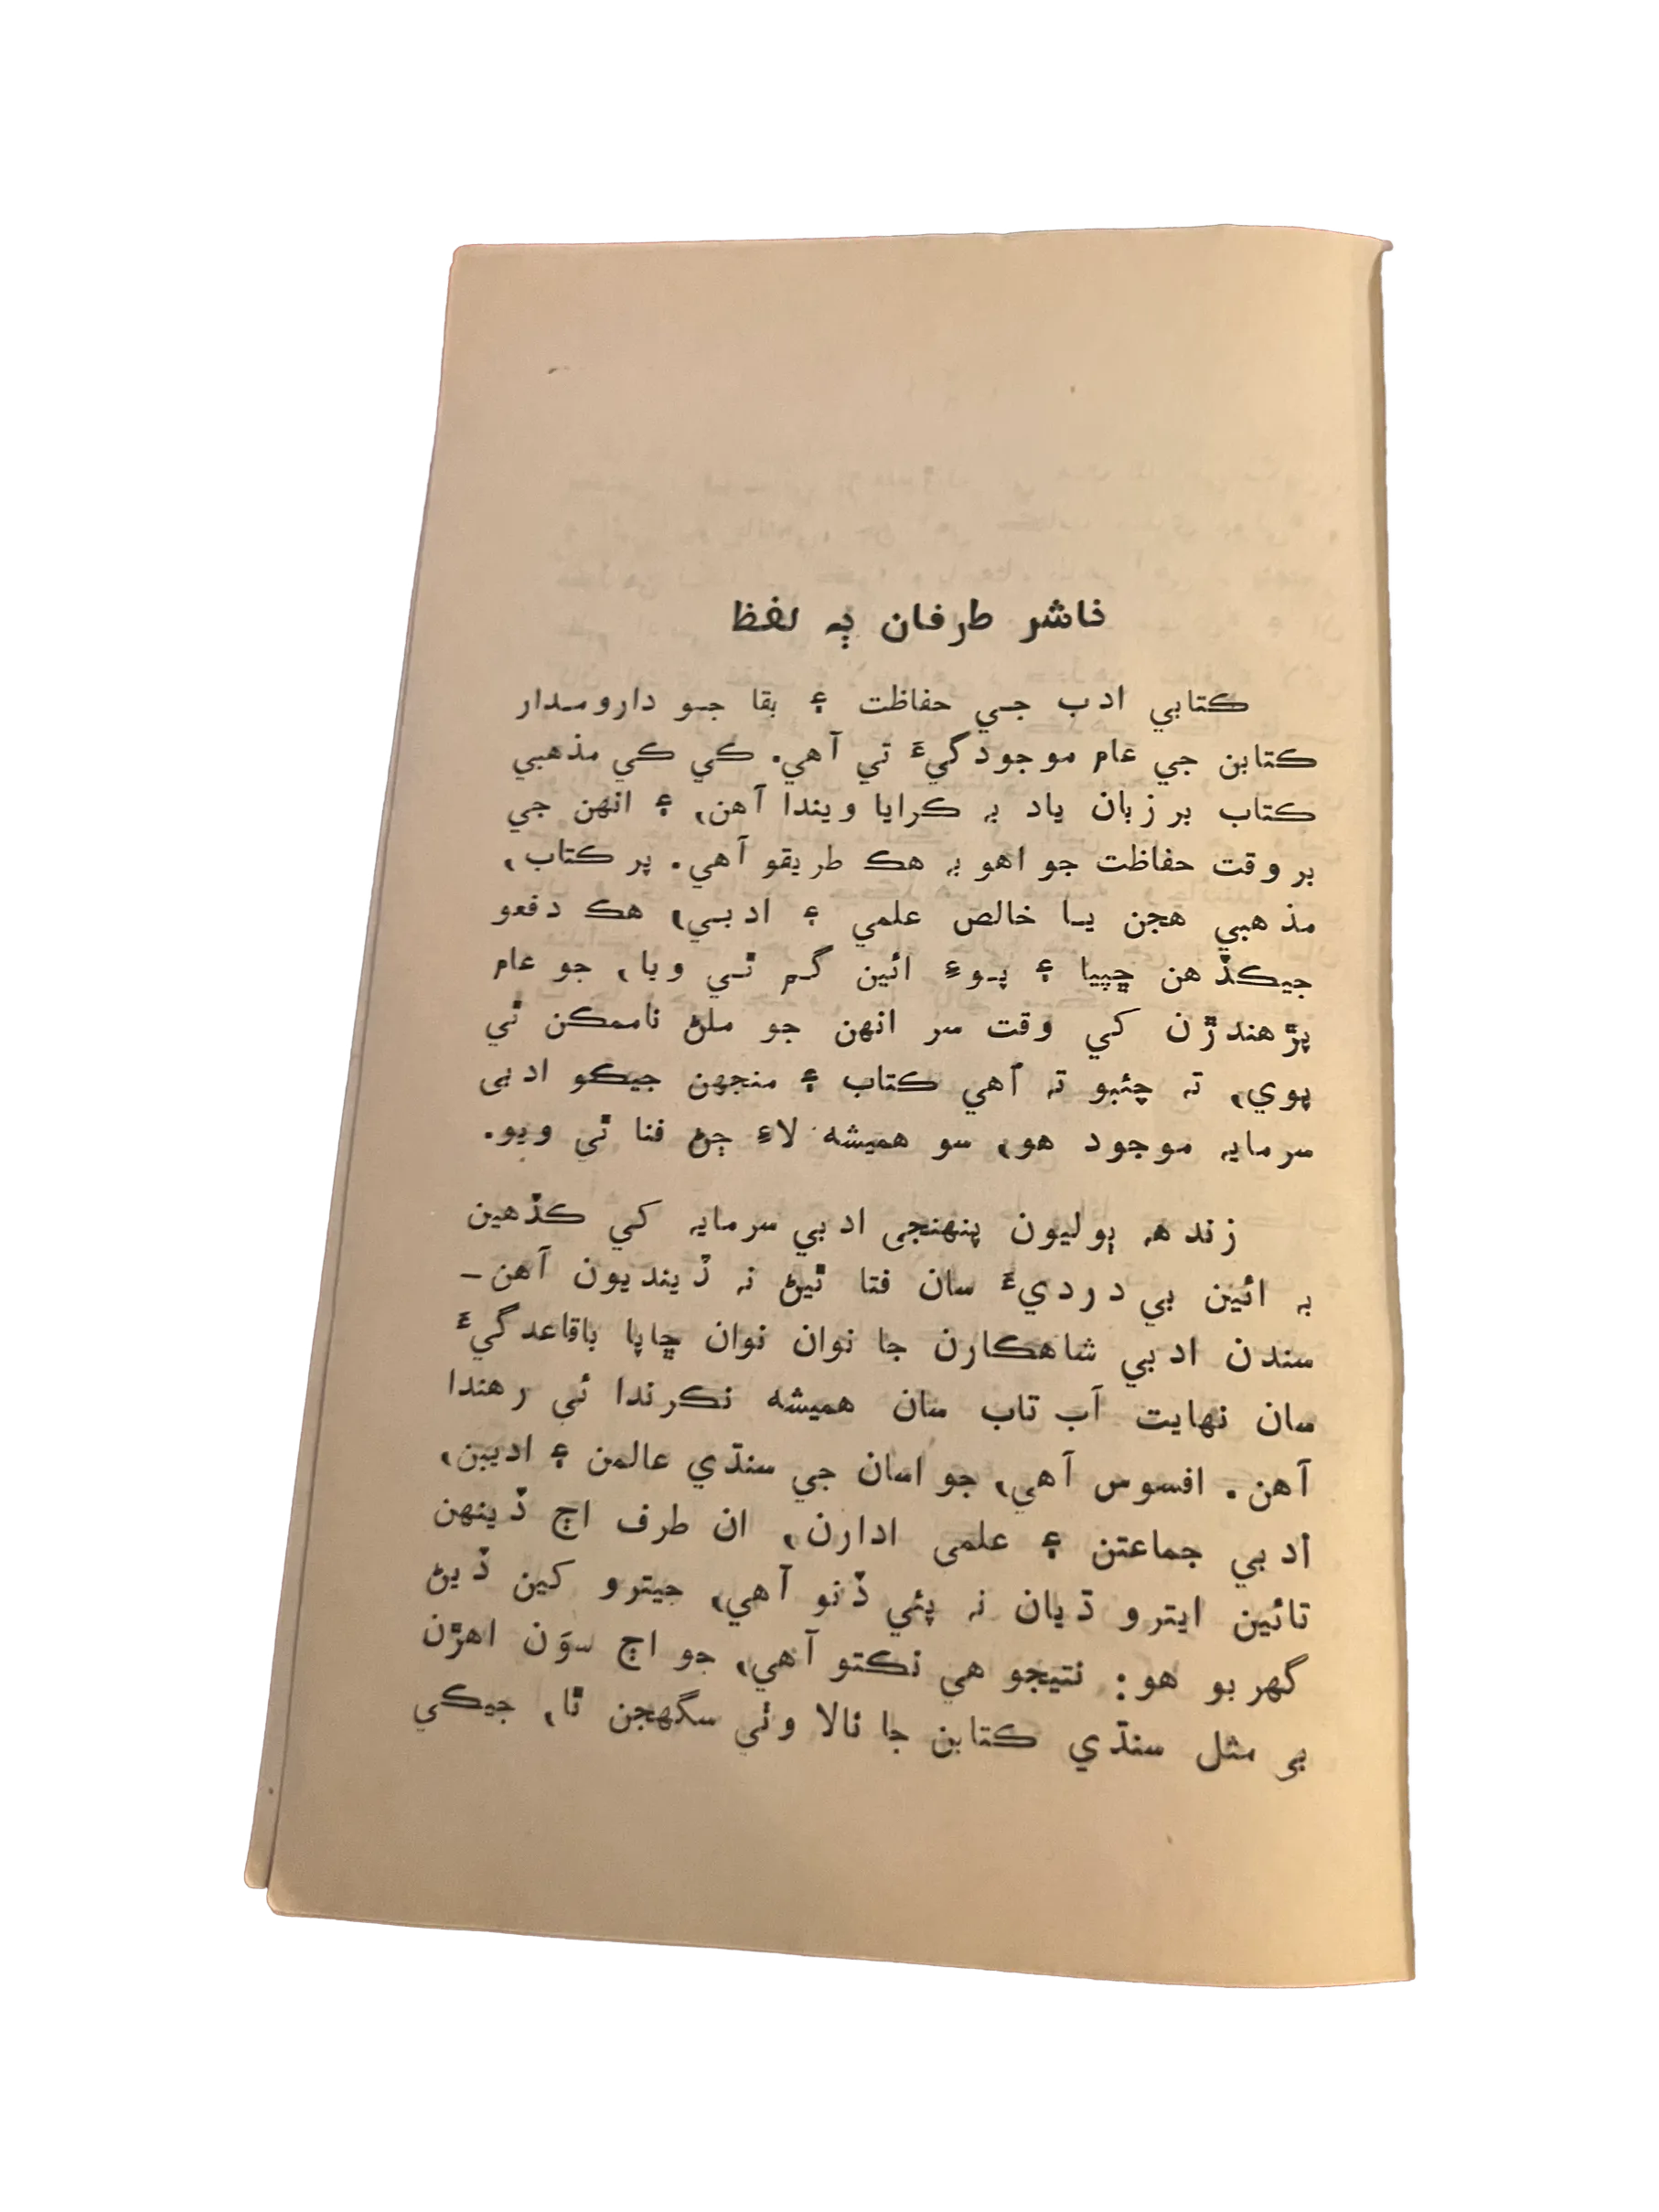 ناشر طرفان ٻہ لفظ
ڪتابي ادب جي حفاظت ۽ بقا جو دارومدار
ڪتابن جي عام موجودگيءَ تي آهي. ڪي ڪي مذهبي
ڪتاب بر زبان ياد بہ ڪرايا ويندا آهن، ۽ انهن جي
بر وقت حفاظت جو اهو بہ هڪ طريقو آهي. پر ڪتاب،
مذهبي هجن يا خالص علمي ۽ ادبي، هڪ دفعو
جيڪڏهن ڇپيا ۽ پوءِ ائين گم ٿي ويا، جو عام
پڙهندڙن کي وقت سر انهن جو ملڻ ناممڪن ٿي
پوي، تہ چئبو تہ اهي ڪتاب ۽ منجهن جيڪو ادبي
سرمايہ موجود هو، سو هميشہ لاءِ ڄڻ فنا ٿي ويو.
زندهہ ٻوليون پنهنجي ادبي سرمايہ کي ڪڏهين
بہ ائين بي درديءَ سان فنا ٿيڻ نہ ڏينديون آهن -
سندن ادبي شاهڪارن جا نوان نوان ڇاپا باقاعدگيءَ
سان نهايت آب تاب سان هميشہ نڪرندا ئي رهندا
آهن. افسوس آهي، جو اسان جي سنڌي عالمن ۽ اديبن،
ادبي جماعتن ۽ علمي ادارن، ان طرف اڄ ڏينهن
تائين ايترو ڌيان نہ پئي ڏنو آهي، جيترو کين ڏيڻ
گهربو هو: نتيجو هي نڪتو آهي، جو اڄ سوَن اهڙن
بي مثل سنڌي ڪتابن جا نالا وٺي سگهجن ٿا، جيڪي